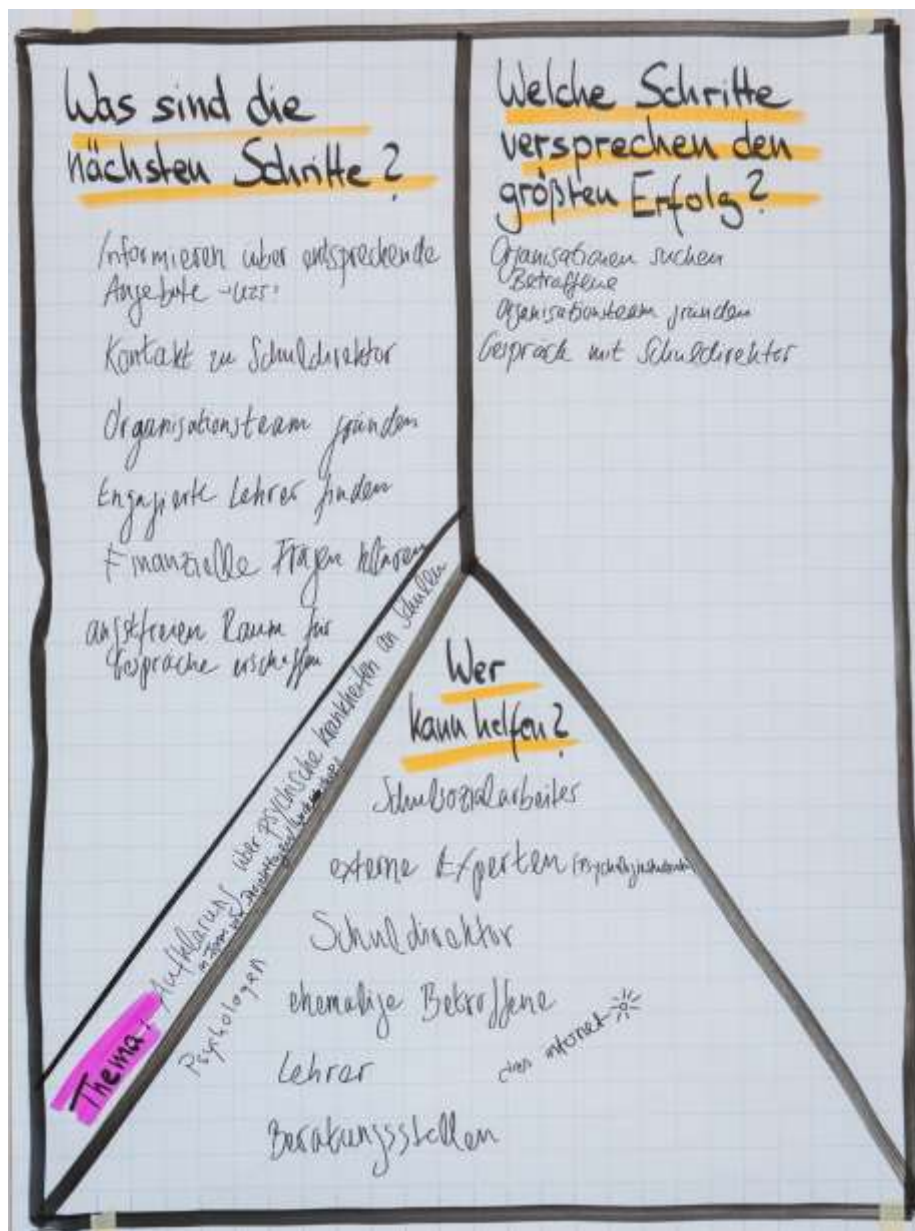 Was sind die
nächsten Schritte?
Informieren über entsprechende
Angebote
Kontakt zu Schuldirektor
Organisationsteam gründen
Engagierte Lehrer finden
Finanzielle Fragen klären
angstfreien Raum für
Gespräche erschaffen
Welche Schritte
versprechen den
größten Erfolg?
Organisationen suchen
Betroffene
Organisationsteam gründen
Gespräch mit Schuldirektor
Thema: Aufklärung über psychische Krankheiten an Schulen
in Form von
Wer
kann helfen?
Schulsozialarbeiter
externe Experten
Schuldirektor
ehemalige Betroffene
Lehrer
Beratungsstellen
Psychologen
Internet